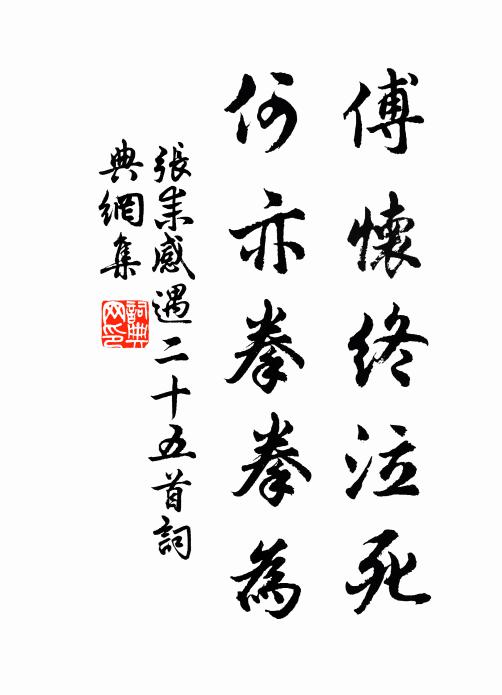 傅懷終泣死
何亦拳拳為
張耒感遇二十五首詞
典網集
詞典網印